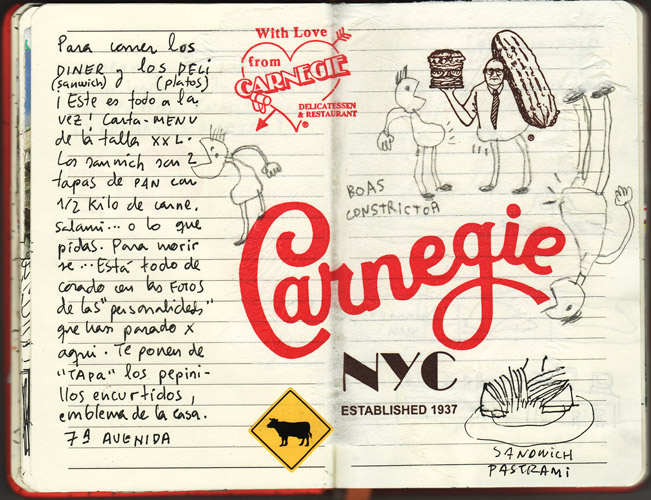 Para comer los
DINER y los DELI
(sanwich) (platos)
¡Este es todo a la
vez! Carta-MENU
de la talla XXL.
Los sanwich son 2
tapas de PAN con
1/2 kilo de carne,
salami... o lo que
pidas. Para morir
se... Está todo de
corado con las FOTOS
de las "personalidades"
que han pasado x
aqui. Te ponen de
"TAPA" los pepini-
llos encurtidos,
emblema de la casa.
7ª AVENIDA
With Love
from
CARNEGIE
DELICATESSEN
& RESTAURANT
®
®
BOAS
CONSTRICTOR
Carnegie
NYC
ESTABLISHED 1937
SANDWICH
PASTRAMI